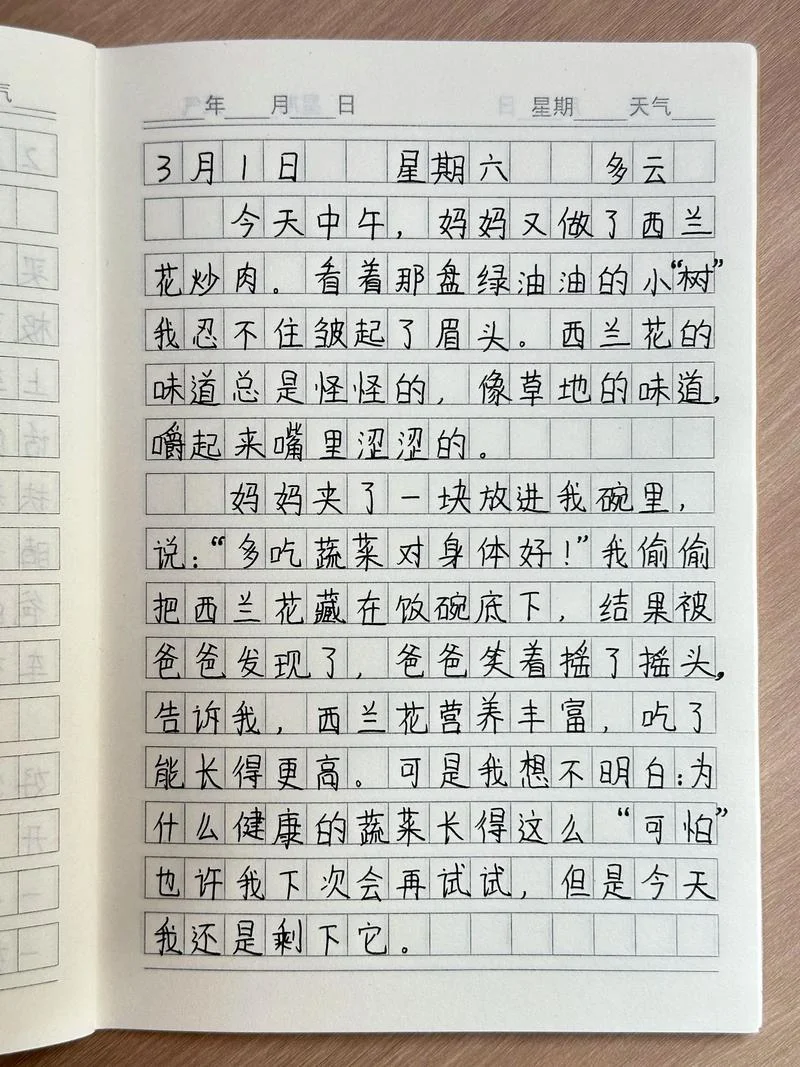 年 月 日 星期 天气
3月1日 星期六 多云
今天中午，妈妈又做了西兰
花炒肉。看着那盘绿油油的小“树”
我忍不住皱起了眉头。西兰花的
味道总是怪怪的，像草地的味道，
嚼起来嘴里涩涩的。
妈妈夹了一块放进我碗里，
说：“多吃蔬菜对身体好！”我偷偷
把西兰花藏在饭碗底下，结果被
爸爸发现了，爸爸笑着摇了摇头，
告诉我，西兰花营养丰富，吃了
能长得更高。可是我想不明白：为
什么健康的蔬菜长得这么“可怕”
也许我下次会再试试，但是今天
我还是剩下它。